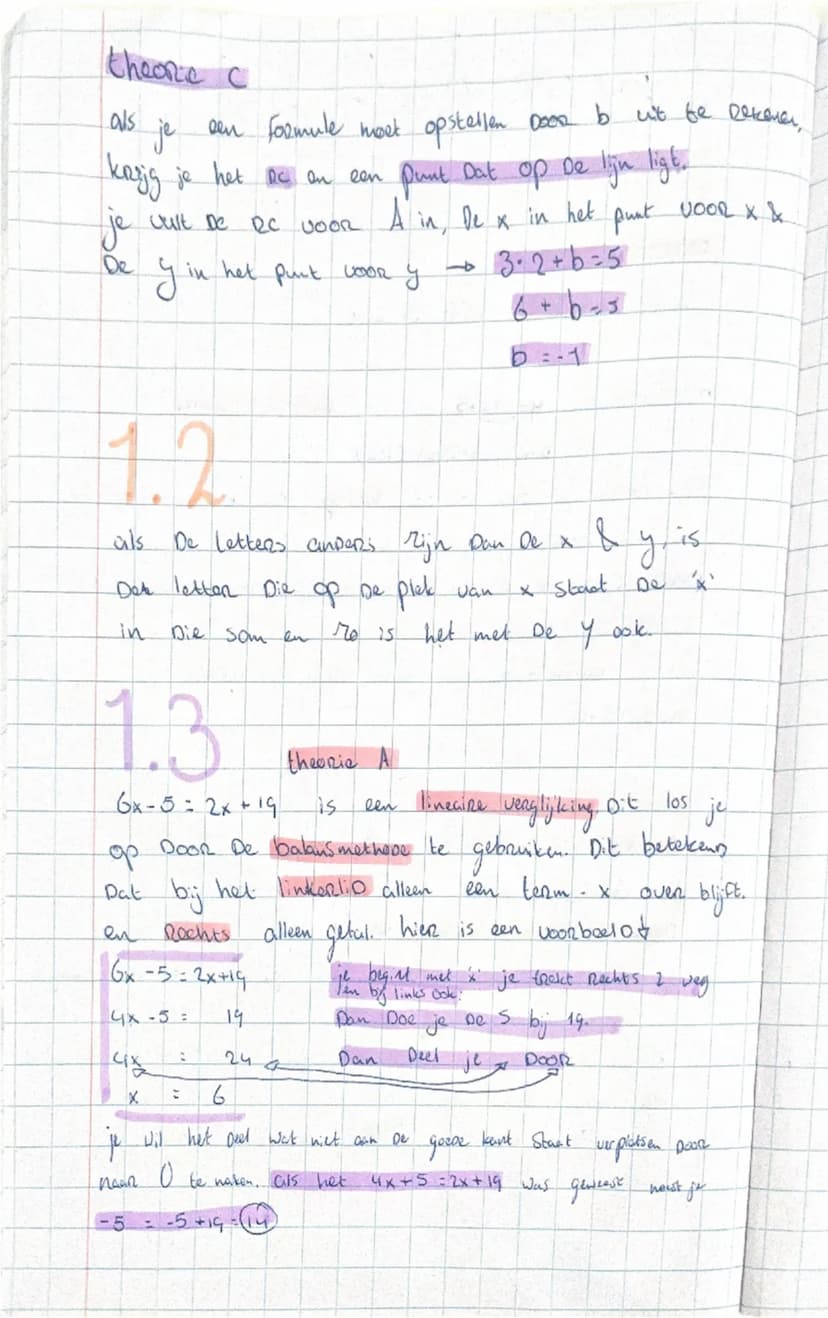 theorie C
als je een formule moet opstellen door b uit te rekenen,
krijg je het RC en een punt dat op de lijn ligt.
je vult de RC voor A in, de x in het punt voor x &
De y in het punt voor y → 3·2+b=5
6 + b=5
b = -1
1.2
als De letters anders zijn Dan De x & y, is
Dan letter Die op De plek van x staat De 'x'
in Die som en zo is het met De y ook.
1.3
theorie A
6x-5 = 2x+19 is een lineaire verglijking. Dit los je
op Door De balansmethode te gebruiken. Dit betekend
Dat bij het linkerlid alleen een term - x over blijft.
en Rechts alleen getal. hier is een voorbeeld ↓
6x -5 = 2x+19 je begint met 'x' je trekt Rechts 2 weg
en bij links ook.
4x -5 = 19 Dan Doe je De 5 bij 19.
4x = 24 Dan Deel je Door
x = 6
je wil het Deel wat niet aan De goede kant staat verplatsen Door
naar 0 te maken. als het 4x+5=2x+19 was geweest moest je
-5 = -5+19=14